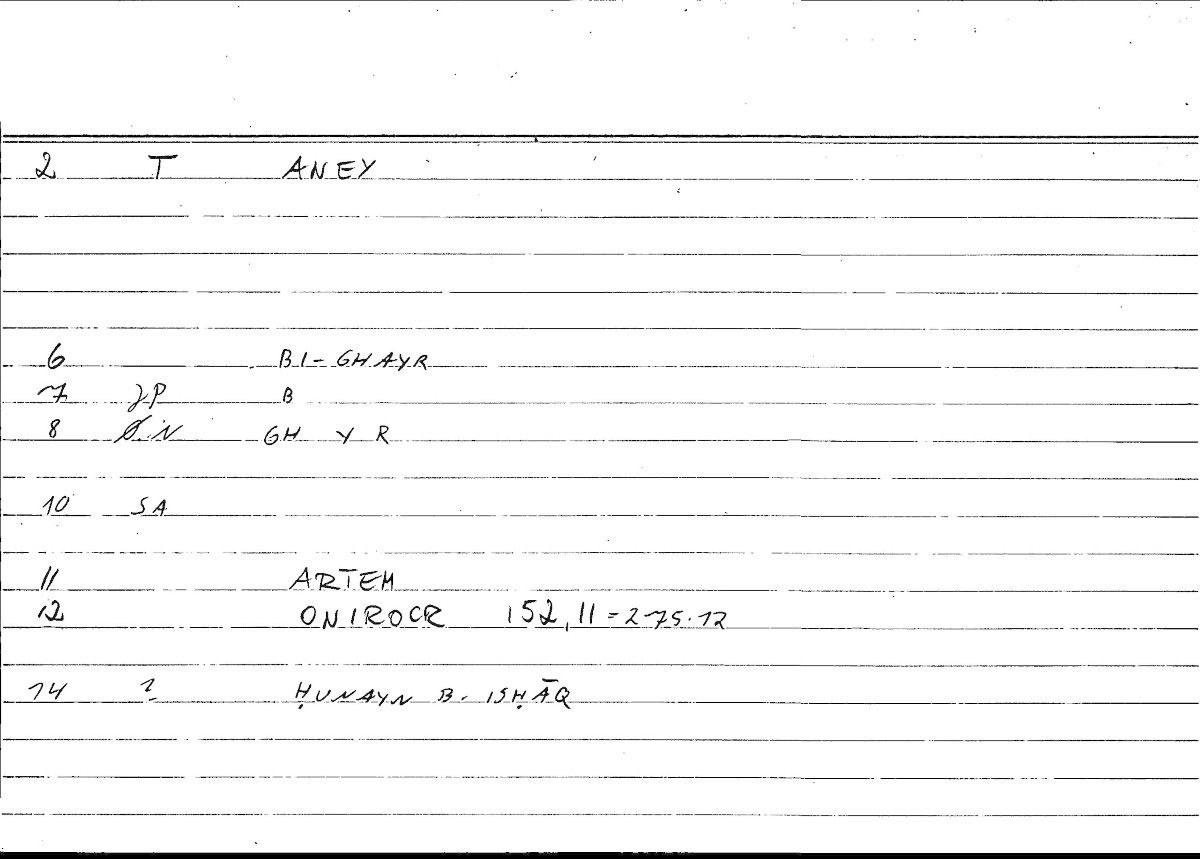 2 T ANEY
6 BI-GHAYR
7 JP B
8 IN GH Y R
10 SA
11 ARTEM
12 ONIROCR 152,11=2-75.12
14 2 ḤUNAYN B. ISḤĀQ